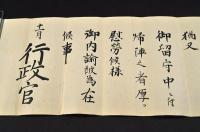 猶又
御留守中ニ付
帰陣之者厚ク
慰労候様
御内諭被為在
候事
十一月
行政官